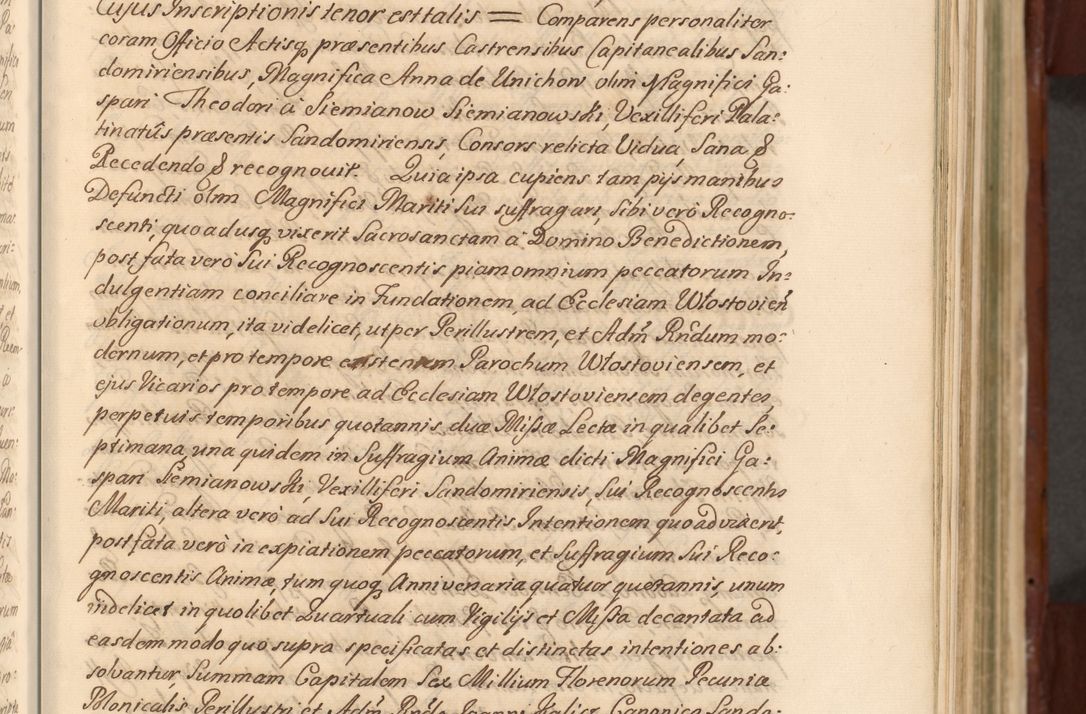 Cujus Inscriptionis tenor est talis = Comparens personaliter
coram Officio Actisq præsentibus Castrensibus Capitanealibus San:
domiriensibus, Magnifica Anna de Unichow olim Magnifici Ga:
spari Theodori à Siemianow Siemianowski, Vexilliferi Pala:
tinatûs præsentis Sandomiriensis, Consors relicta Vidua, Sana &
Recedendo & recognovit. Quia ipsa cupiens tam pijs manibus
Defuncti olim Magnifici Mariti sui suffragari, sibi verò Recogno:
scenti, quoadusq vixerit Sacrosanctam à Domino Benedictionem,
post fata verò sui Recognoscentis piam omnium peccatorum In:
dulgentiam conciliare in Fundationem, ad Ecclesiam Włostovien̄
obligationum, ita videlicet, ut per Perillustrem, et Adm̃ Rñdum mo:
dernum, et pro tempore existentem Parochum Włostoviensem, et
ejus Vicarios pro tempore ad Ecclesiam Włostoviensem degentes,
perpetuis temporibus quotannis, duæ Missæ Lectæ in qualibet Se:
ptimana, una quidem in Suffragium Animæ dicti Magnifici Ga:
spari Siemianowski Vexilliferi Sandomiriensis, sui Recognoscentis
Mariti, altera verò ad sui Recognoscentis Intentionem quoad vixerit,
post fata verò in expiationem peccatorum, et Suffragium sui Reco:
gnoscentis Animæ, tum quoq Anniversaria quatuor quotannis, unum
videlicet in quolibet Quartuali cum Vigilijs et Missa decantata ad
easdem modo quo supra specificatas et distinctas intentiones ab:
solvantur Summam Capitalem Sex Millium Florenorum Pecuniæ
Polonicalis Perillustri et Adm̃ Rñdo Joanni Kalicz Canonico Sando: